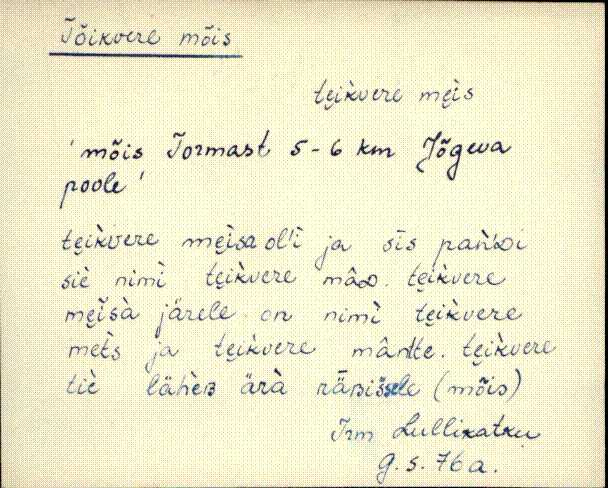 Tõikvere mõis
te̮ìkvere me̮ìs
'mõis Tormast 5-6 km Jõgeva
poole'
te̮ìkvere me̮ìsa ol'ì ja sīs pańDi
siè nimì te̮ìkvere mâD. te̮ìkvere
me̮ìsà järele on nimì te̮ìkvere
mets ja te̮ìkvere mântte. te̮ìkvere
tiè lähèB ärà räBišsele (mõis)
Irm Lullikatku
G. S. 76 a.